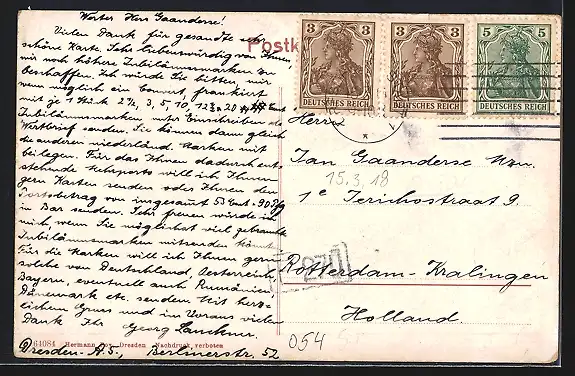 Werter Herr Gaanderse!
Vielen Dank für gesandte sehr
schöne Karte. Sehr liebenswürdig von Ihnen,
mir noch höhere Jubiläumsmarken zu
beschaffen. Ich würde Sie bitten, mir
wenn möglich ein Couvert, frankiert
mit je 1 Stück 2½, 3, 5, 10, 12½, 20 Cent
Jubiläumsmarken, unter Einschreiben als
Wertbrief senden. Sie können dann gleich
die anderen niederländ. Marken mit
beilegen. Für das Ihnen dadurch ent-
stehende Mehrporto will ich Ihnen
gern Karten senden oder Ihnen den
Portobetrag von insgesamt 53 Cent = 90 Pfg
in Bar senden. Sehr freuen würde ich
mich, wenn Sie möglichst viel gebrauchte
Jubiläumsmarken mitsenden
Für die Marken will ich Ihnen gern
solche von Deutschland, Oesterreich,
Bayern, eventuell auch Rumänien,
Dänemark etc. senden. Mit herz-
lichem Gruss und im Voraus vielen
Dank Ihr Georg Lanckner.
Dresden-A. 5., Berlinerstr. 52
64084 Hermann Dresden Nachdruck verboten
Postk
3 3
DEUTSCHES REICH
3 3
DEUTSCHES REICH
5 5
DEUTSCHES REICH
Herrn
Jan Gaanderse Wzn.
15.3.18
1e Jerichostraat 9
270
Rotterdam-Kralingen
Holland.
054